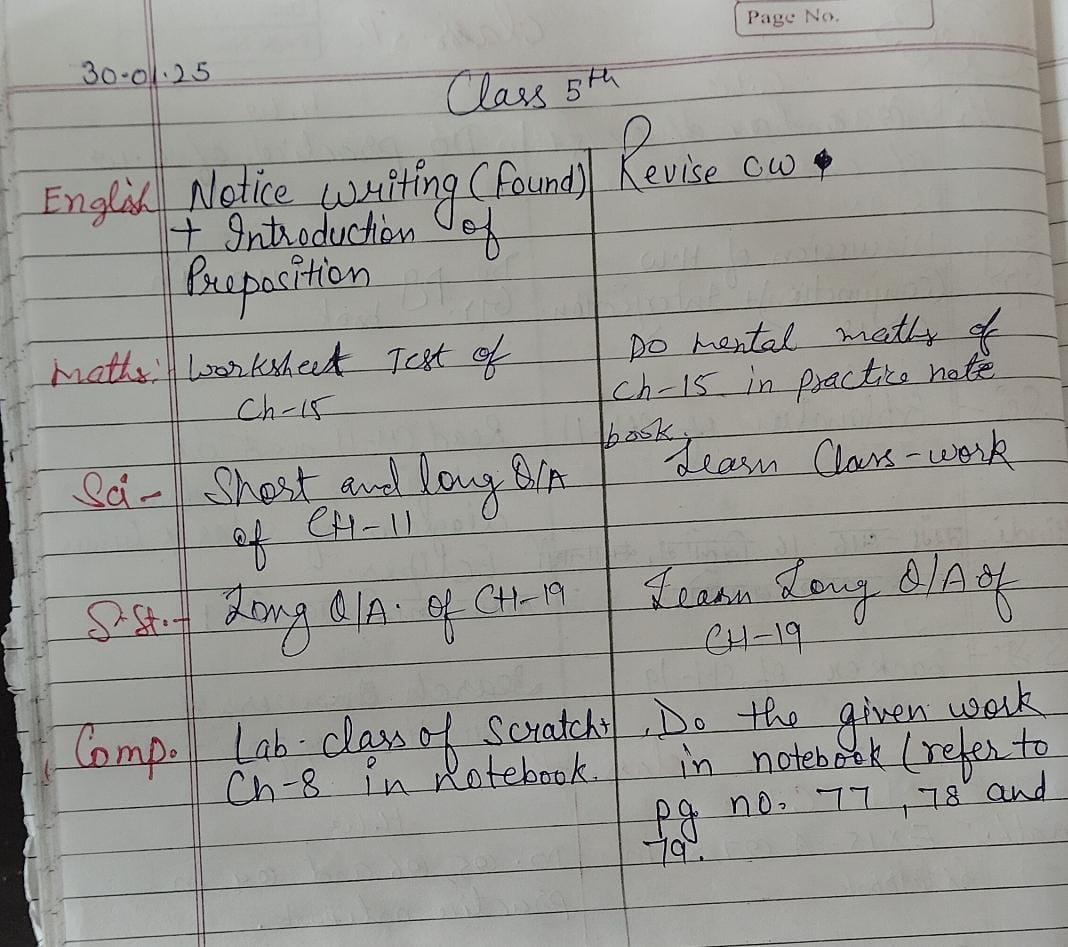 Page No.
30-01-25
Class 5th
English Notice writing (found) Revise CW
+ Introduction of
Preposition
Maths: Worksheet Test of Do mental maths of
Ch-15 Ch-15 in practice note
book.
Sci- Short and long Q/A Learn Class-work
of CH-11
S.St.- Long Q/A. of CH-19 Learn Long Q/A of
CH-19
Comp. Lab-class of Scratch+ Do the given work
Ch-8 in notebook. in notebook (refer to
pg no. 77, 78 and
79.